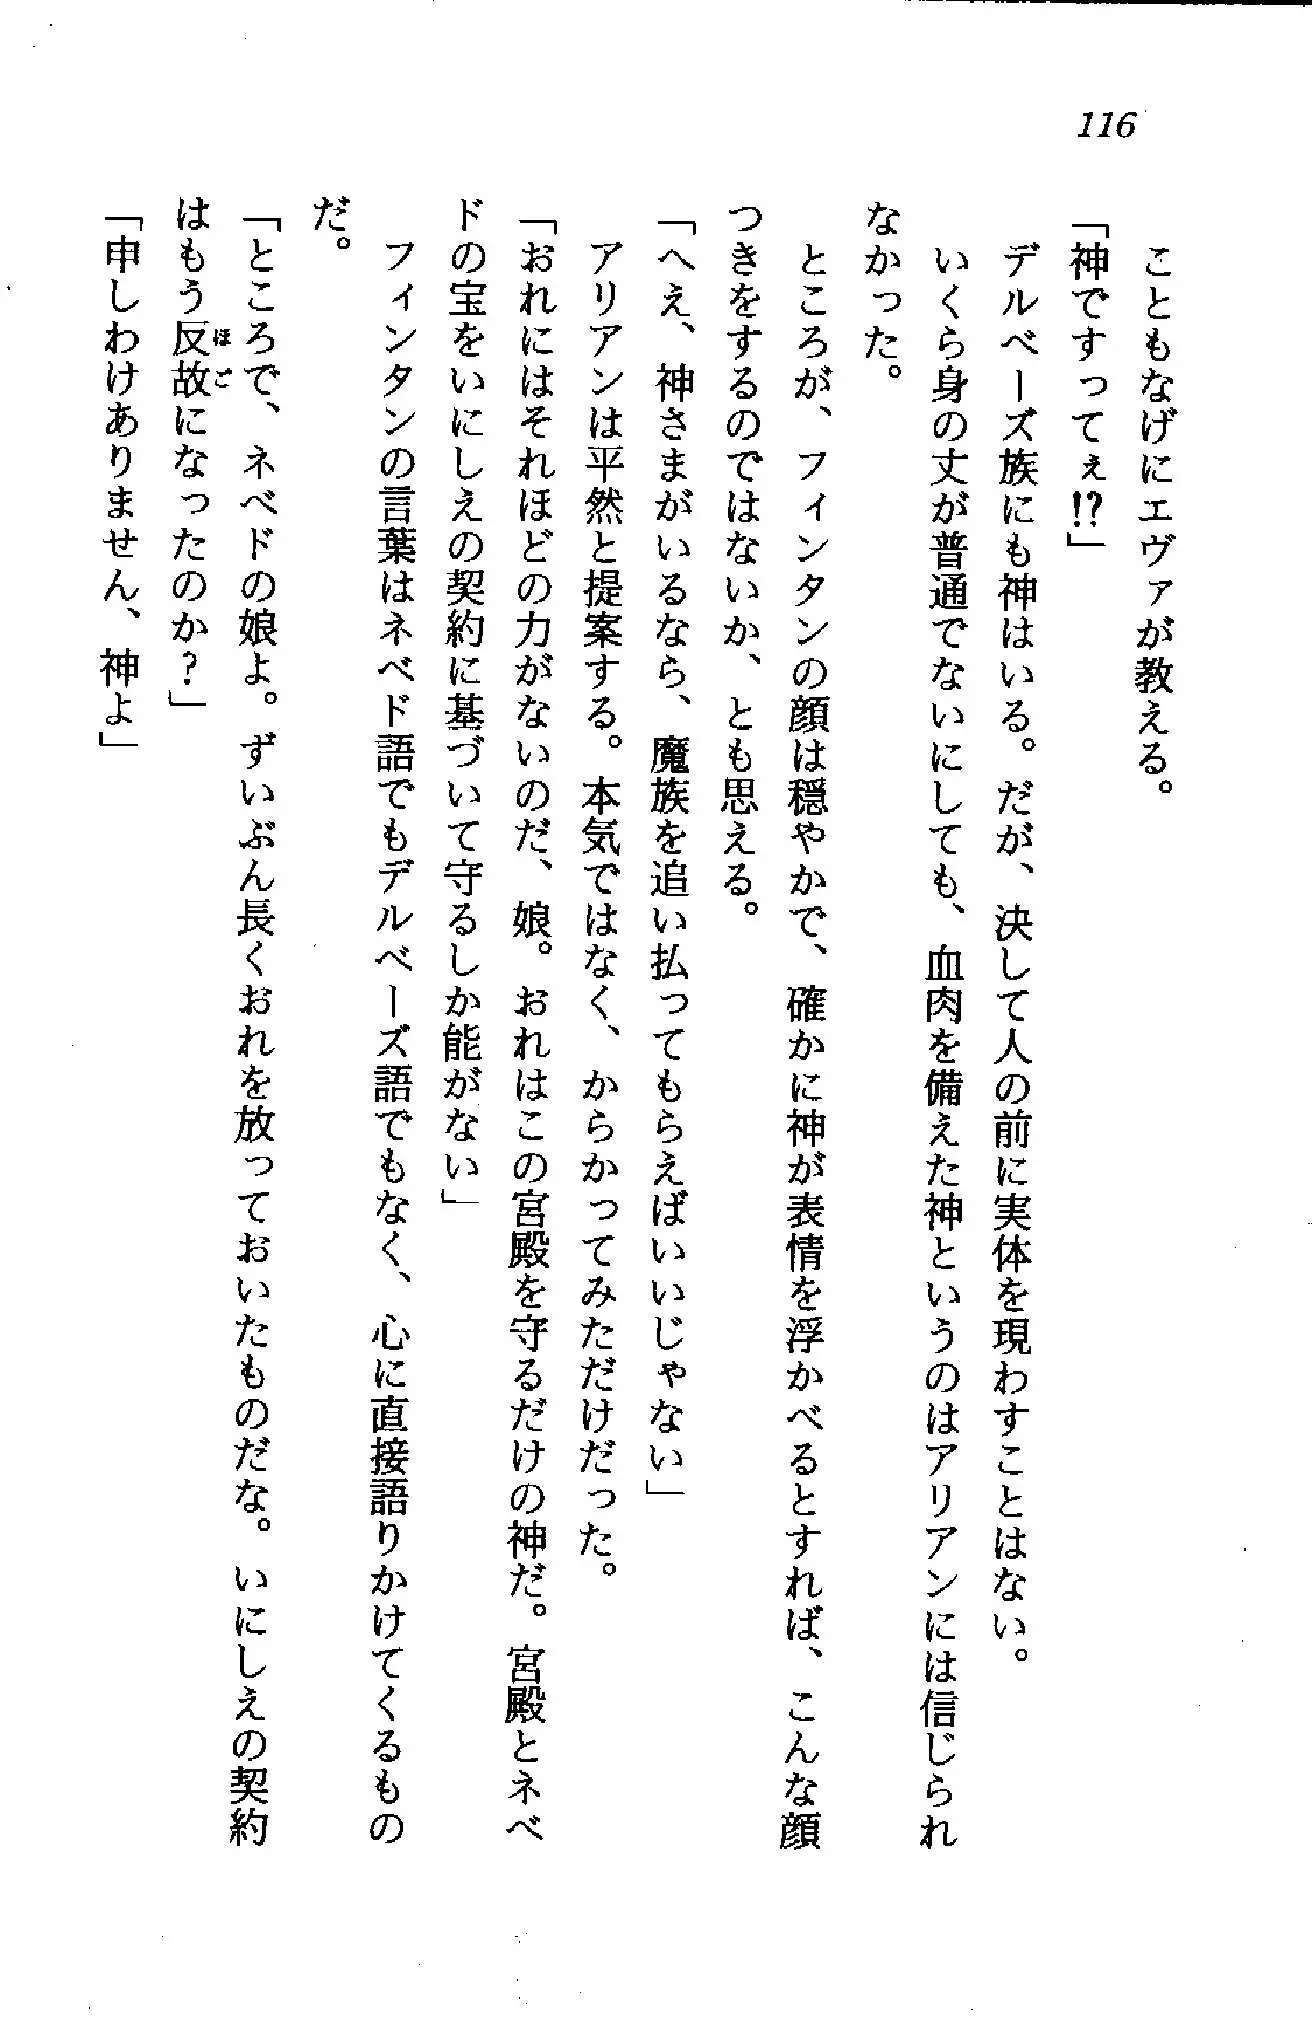 116
こともなげにエヴァが教える。
「神ですってぇ!?」
デルベーズ族にも神はいる。だが、決して人の前に実体を現わすことはない。
いくら身の丈が普通でないにしても、血肉を備えた神というのはアリアンには信じられ
なかった。
ところが、フィンタンの顔は穏やかで、確かに神が表情を浮かべるとすれば、こんな顔
つきをするのではないか、とも思える。
「へえ、神さまがいるなら、魔族を追い払ってもらえばいいじゃない」
アリアンは平然と提案する。本気ではなく、からかってみただけだった。
「おれにはそれほどの力がないのだ、娘。おれはこの宮殿を守るだけの神だ。宮殿とネベ
ドの宝をいにしえの契約に基づいて守るしか能がない」
フィンタンの言葉はネベド語でもデルベーズ語でもなく、心に直接語りかけてくるもの
だ。
「ところで、ネベドの娘よ。ずいぶん長くおれを放っておいたものだな。いにしえの契約
はもう反故ほごになったのか？」
「申しわけありません、神よ」